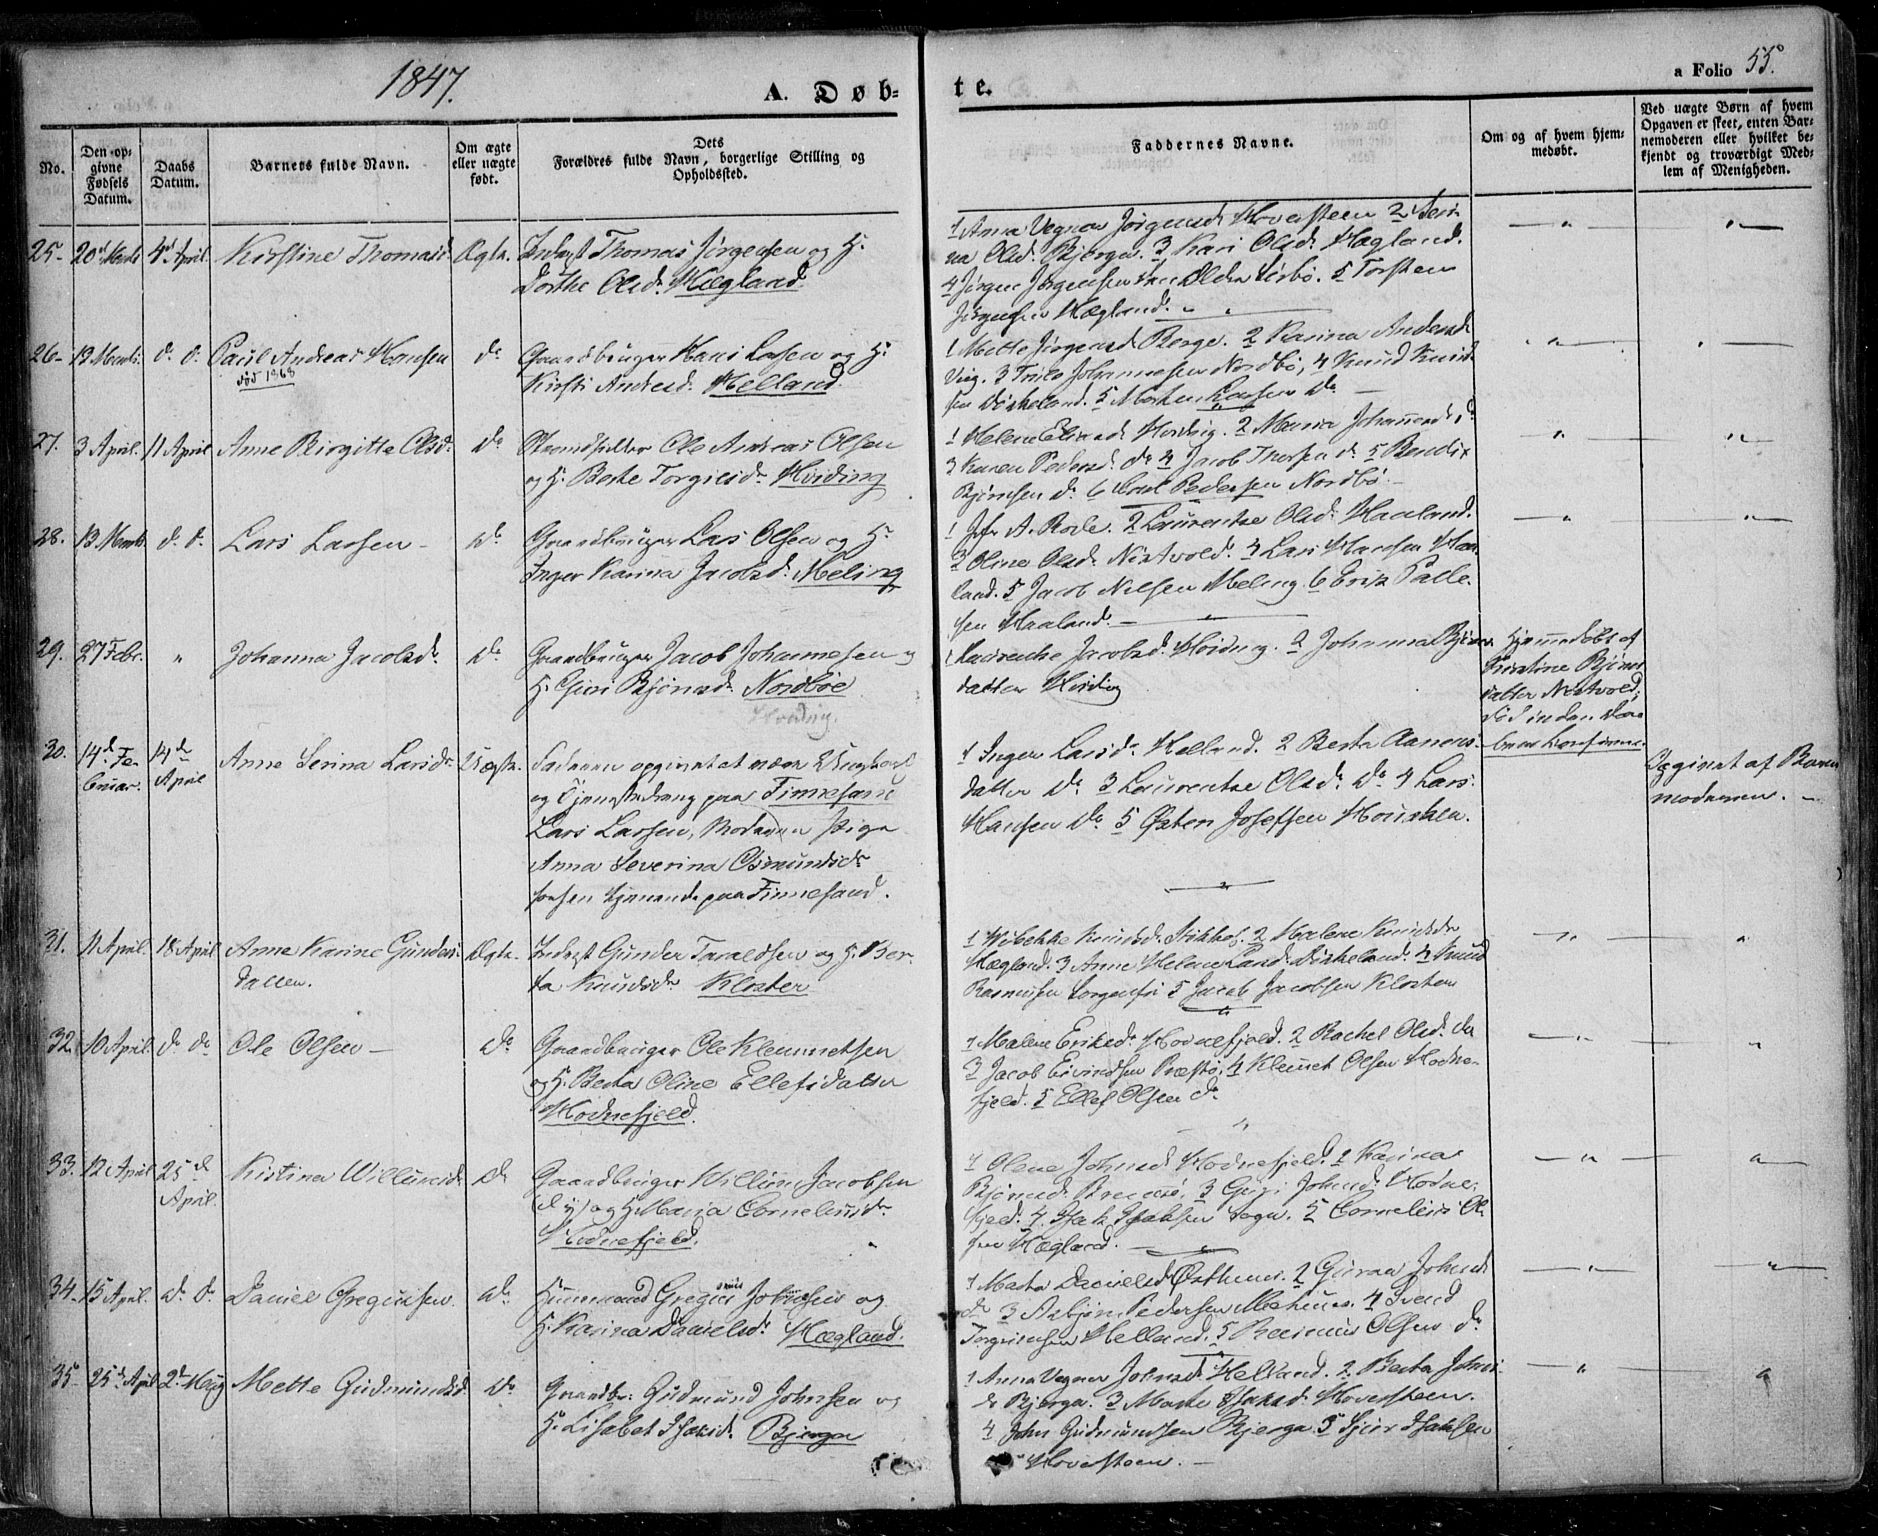 1847.
A. Døb-
te.
a Folio 55.
No.
Den op-
givne
Fødsels
Datum.
Daabs
Datum.
Barnets fulde Navn.
Om ægte
eller uægte
født.
Dets
Forældres fulde Navn, borgerlige Stilling og
Opholdssted.
Faddernes Navne.
Om og af hvem hjem-
medøbt.
Ved uægte Børn af hvem
Opgaven er skeet, enten Bar-
nemoderen eller hvilket be-
kjendt og troværdigt Med-
lem af Menigheden.
25. 20d Marts 4d April. Kirstine Thomasd. Ægte. Inderst Thomas Jörgensen og H.
Dorthe Olsd. Hægland.
1 Anna Vegner Jörgensd. Hoversteen 2 Seri-
na Olsd. Bjerga. 3 Kari Olsd. Hægland.
4 Jörgen Jörgensen Sörbö. 5 Torsten
Jörgensen Hægland.
26. 13 Marts. d. d. Paul Andreas Hansen do Gaardbruger Hans Larsen og H.
död 1868
Kirsti Andersd. Helland.
1 Mette Jörgensd Berge. 2 Karina Andersd
Viig. 3 Johannesen Nordbö, 4 Knud Knud-
sen Dirkeland. 5 Morten Larsen do
27. 3 April. 11 April Anne Birgitte Olsd. do Strandsidder Ole Andreas Olsen
og H. Berte Torgiesdr Hviding
1 Helene Hviding. 2 Maria Johannesd. d.
3 Karen Pedersd. do 4 Jacob Thorsen d. 5 Bendix
Björnsen d. 6 Pedersen Nordbö.
28. 13 Marts. d. d. Lars Larsen do Gaardbruger Lars Olsen og H.
Inger Karina Jacobsd. Meling
1 Jfr A. Rode. 2 Laurentze Olsd. Haaland.
3 Oline Olsd. Nistvold. 4 Lars Hansen Haa-
land. 5 Jacob Nilsen Meling. 6 Erik Palle-
sen Haaland.
29. 27 Febr. " Johanna Jacobsd. do Gaardbruger Jacob Johannesen og
H. Guri Björnsd. Nordböe
Hviding.
1 Laurentze Jacobsd. Hviding. 2 Johanna Björns-
datter Hviding
Hjemmedöbt af
Kirstine Björns
datter Nistvold,
död inden Daa-
bens Confirma.
30. 14d Fe-
bruar. 14de
April Anne Serina Larsdr Uægte. Faderen opgivet at være Ungkarl
og Tjenestedreng paa Finnesand
Lars Larsen, Moderen Pige
Anna Severina Osmundsdr
tjenende paa Finnesand.
1 Inger Larsdr Helland. 2 Berta Aanens-
datter do 3 Laurentze Olsd. do 4 Lars
Hansen do 5 Östen Josefsen Houske.
Opgivet af Barne-
moderen.
31. 11 April. 18 April Anne Karine Gunders-
datter. Ægte. Inderst Gunder Taraldsen og H. Ber-
ta Knudsdr Kloster
1 Wibekke Knudsd. 2 Malene Knudsdr
Hægland. 3 Anne Helene Dirkeland. 4 Knud
Rasmusen 5 Jacob Jacobsen Kloster
32. 10 April. do do Ole Olsen do Gaardbruger Ole Klemmetsen
og H. Berta Oline Ellefsdatter
Hodnefjeld.
1 Malene Eriksd. Hodnefjeld. 2 Rachel Olsd. do
3 Jacob Eivindsen 4 Klemet Olsen Hodne-
fjeld. 5 Ellef Olsen do
33. 12 April 25de
April. Kistina Willumsd. do Gaardbruger Willum Jacobsen
og H. Maria Corneliusdr
Hodnefjeld.
1 Olene Johnsd. Hodnefjeld. 2 Karina
Björnsd. 3 Johnsd. Hodne-
fjeld. 4. Isak Isaksen 5 Cornelius Ol-
sen Hægland.
34. 15 April. do do Daniel Gregersen. do Huusmand Johnsen og
H. Karina Danielsd. Hægland.
1 Marta Danielsd Östhuus. 2 Guroa Johnsd
do 3 Asbjörn Pedersen 4 Svend
Torgrimsen Helland. 5 Rasmus Olsen do
35 25de April 2de May Mette Gudmundsd. do Gaardbr. Gudmund Johnsen og
H. Lisabet Isaksd. Bjerga
1 Anna Vegner Johnsd. Helland. 2 Berta Johns-
d. Bjerga. 3 Marte Isaksd. Hoversteen.
4 John Gudmundsen Bjerga 5 Isaksen
Hoversteen.